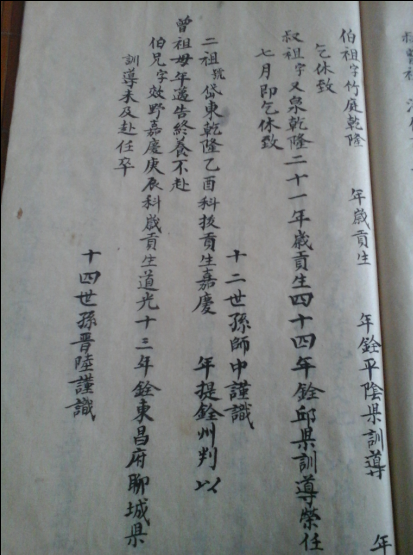 伯祖字竹庭乾隆 年歲貢生 年銓平陰県訓導 年
乞休致
叔祖字又泉乾隆二十一年歲貢生四十四年銓邱県訓導榮任
七月即乞休致
十二世孫師中謹識
二祖號岱東乾隆乙酉科拔貢生嘉慶 年提銓州判以
曾祖母年邁告終養不赴
伯兄字效野嘉慶庚辰科歲貢生道光十三年銓東昌府聊城県
訓導未及赴任卒
十四世孫晋陸謹識